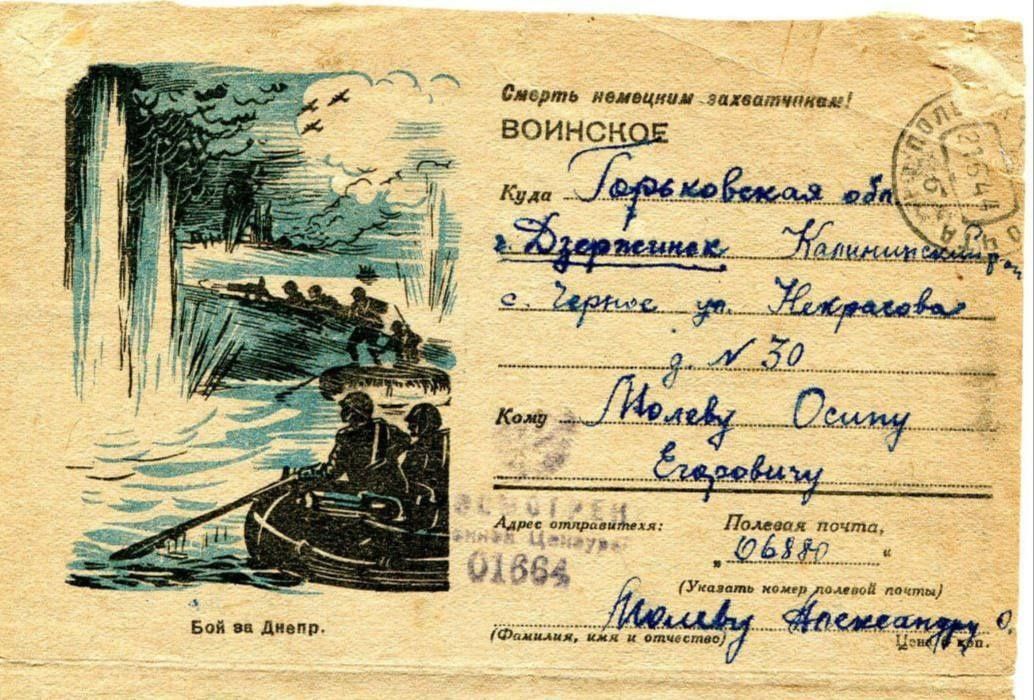 Смерть немецким захватчикам!
ВОИНСКОЕ
Куда Горьковская обл
г. Дзержинск Калининский
с. Черное ул. Некрасова
д. № 30
Кому Молеву Осипу
Егоровичу
Адрес отправителя: Полевая почта,
„ 06880 “
(Указать номер полевой почты)
Молеву Александру О.
(Фамилия, имя и отчество)
Цена коп.
01664
Бой за Днепр.